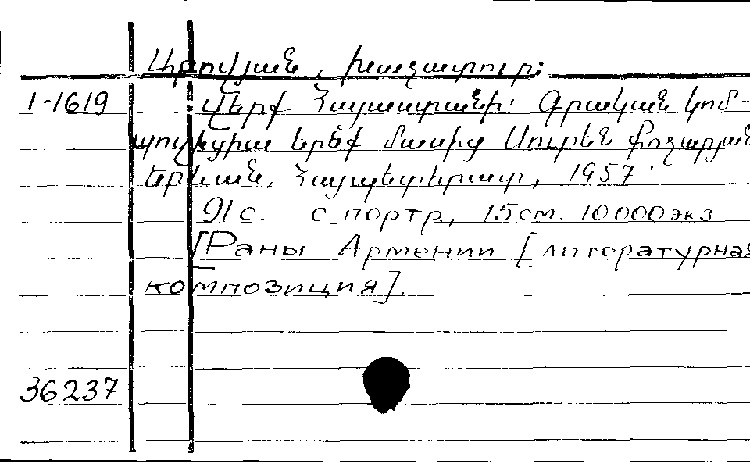 Աբովյան, Խաչատուր։
1-1619 Վերք Հայաստանի։ Գրական կոմ-
պոզիցիա երեք մասից Սուրեն Քոչարյան
Երևան, Հայպետհրատ, 1957
91 с. с портр, 15 см. 10000 экз
[Раны Армении [литературная
композиция].
36237